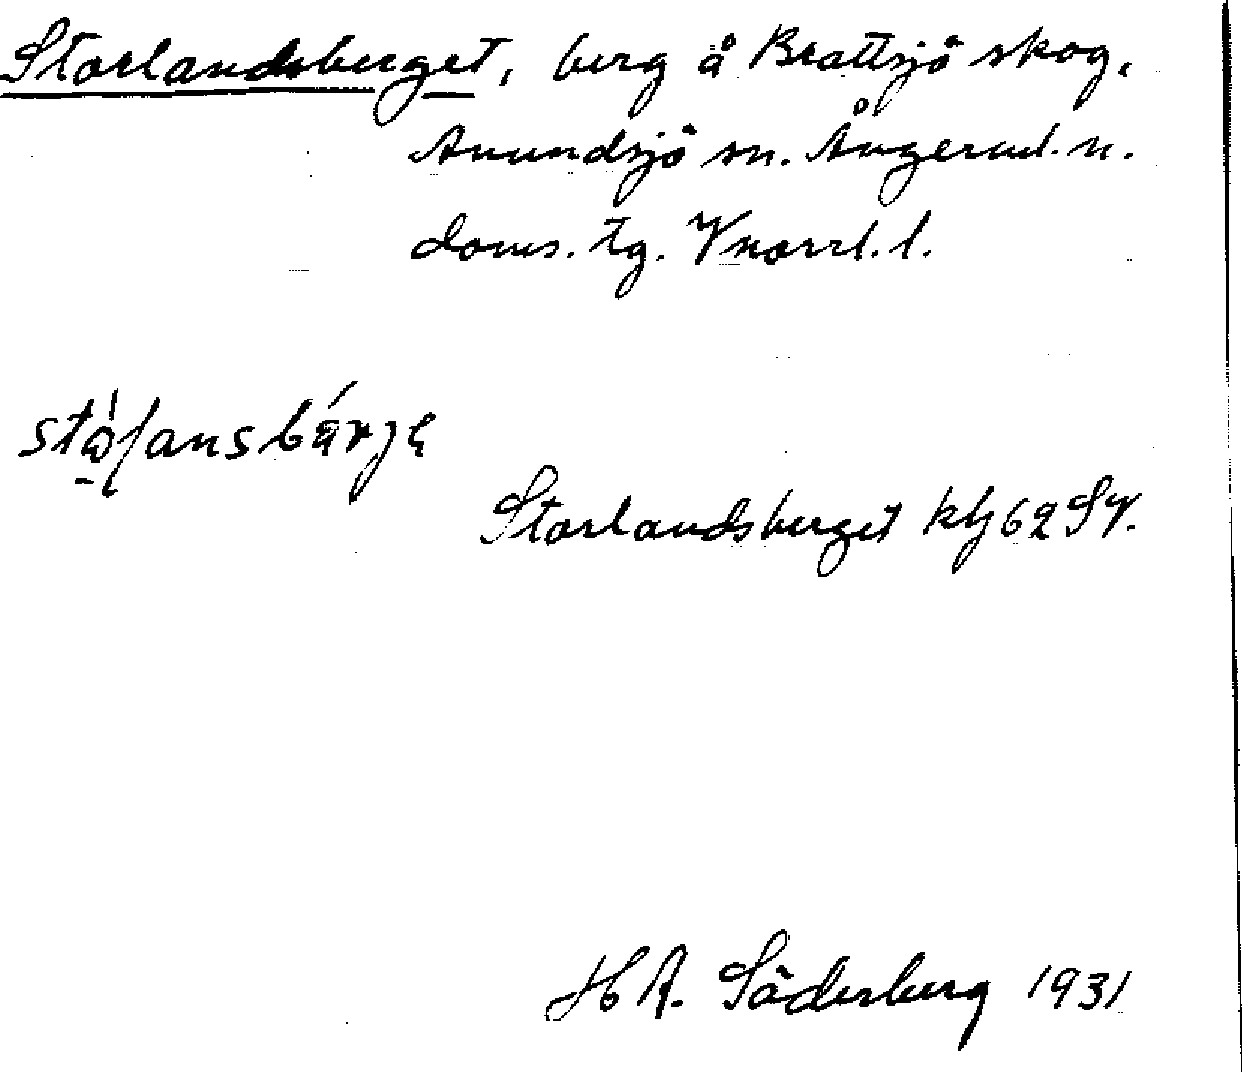 Storlandsberget, berg å Brattsjö skog,
Anundsjö sn. Ångerml. n.
doms. tg. Vnorrl. l.
Storlandsberget kbl 62 SV.
H A. Söderberg 1931